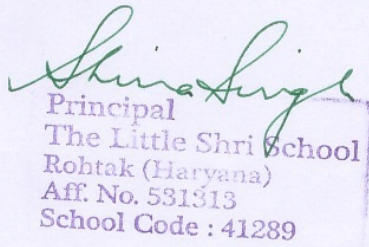 Shina Singh
Principal
The Little Shri School
Rohtak (Haryana)
Aff. No. 531313
School Code : 41289